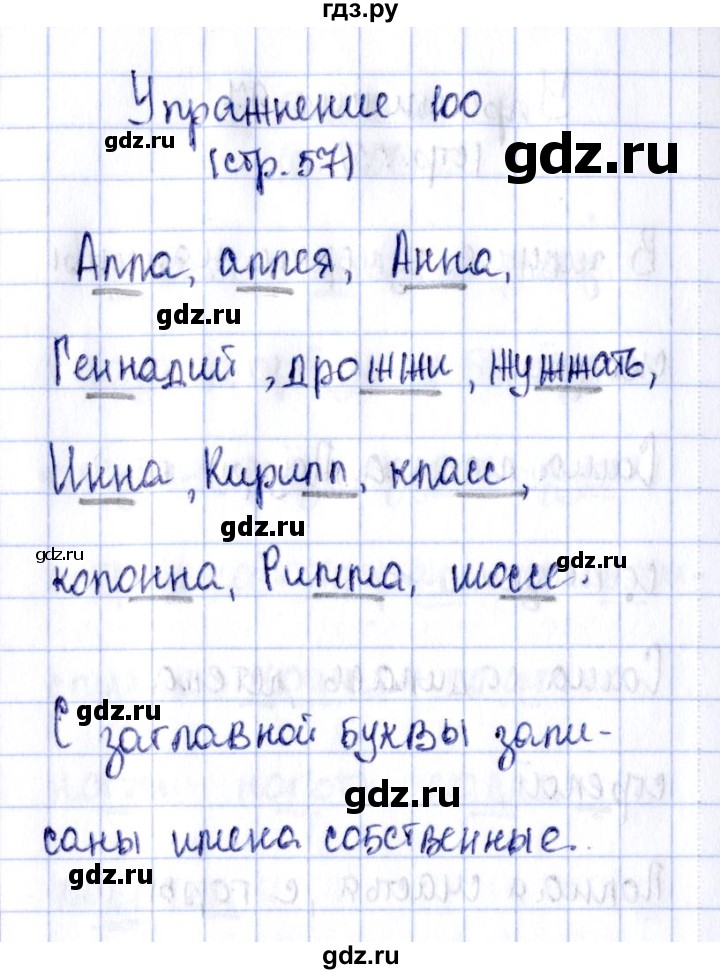 гдз.ру
Упражнение 100
gdz.ru
(стр. 57)
gdz.ru
Алла, аллея, Анна,
gdz.ru
Геннадий, дрожжи, жужжать,
Инна, Кирилл, класс,
gdz.ru
gdz.ru
gdz.ru
колонна, Римма, шоссе.
gdz.ru
С заглавной буквы запи-
gdz.ru
саны имена собственные.
gdz.ru
gdz.ru
gdz.ru